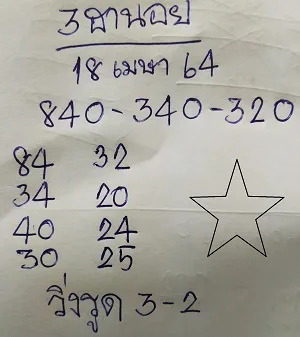 3ฮานอย
18 เมษา 64
840-340-320
84 32
34 20
40 24
30 25
วิ่งรูด 3-2